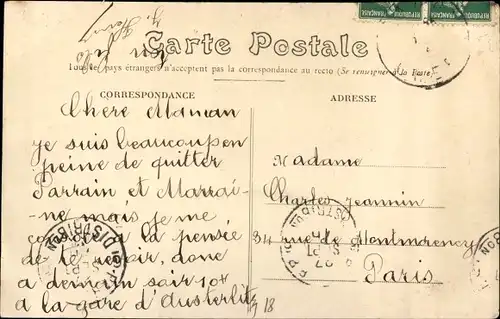 RÉPUBLIQUE FRANÇAISE RÉPUBLIQUE FRANÇAISE
Carte Postale
Tous les pays étrangers n'acceptent pas la correspondance au recto (Se renseigner à la Poste)
CORRESPONDANCE
ADRESSE
Chère Maman
je suis beaucoup en
peine de quitter
Parrain et Marrai-
ne mais je me
console à la pensée
de te revoir, donc
a demain soir 10h
a la gare d'Austerlitz
Madame
Charles Jeannin
34 rue de Montmorency
Paris
DISTRIBUTION